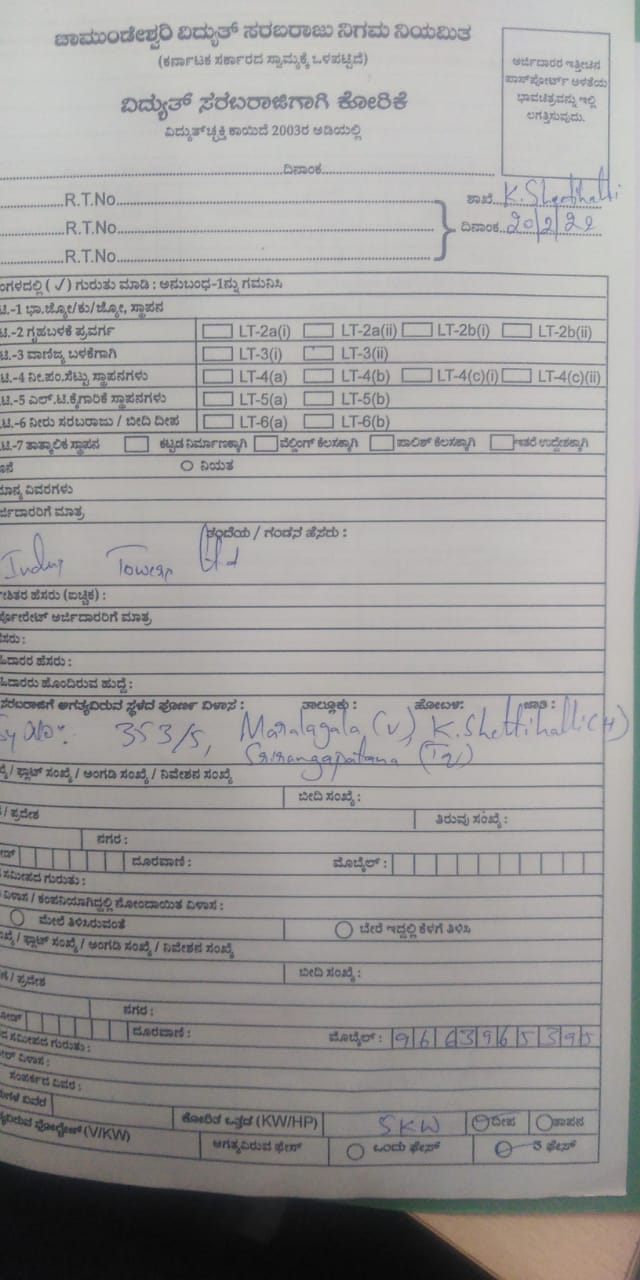 ಚಾಮುಂಡೇಶ್ವರಿ ವಿದ್ಯುತ್ ಸರಬರಾಜು ನಿಗಮ ನಿಯಮಿತ
(ಕರ್ನಾಟಕ ಸರ್ಕಾರದ ಸ್ವಾಮ್ಯಕ್ಕೆ ಒಳಪಟ್ಟಿದೆ)
ವಿದ್ಯುತ್ ಸರಬರಾಜಿಗಾಗಿ ಕೋರಿಕೆ
ವಿದ್ಯುತ್‌ಚ್ಛಕ್ತಿ ಕಾಯಿದೆ 2003ರ ಅಡಿಯಲ್ಲಿ
ಅರ್ಜಿದಾರರ ಇತ್ತೀಚಿನ
ಪಾಸ್‌ಪೋರ್ಟ್ ಅಳತೆಯ
ಭಾವಚಿತ್ರವನ್ನು ಇಲ್ಲಿ
ಲಗತ್ತಿಸುವುದು.
ದಿನಾಂಕ
R.T.No. ಶಾಖೆ. K. Shettihalli
R.T.No. ದಿನಾಂಕ. 20/2/22
R.T.No.
ಗಳದಲ್ಲಿ ( ✓ ) ಗುರುತು ಮಾಡಿ : ಅನುಬಂಧ-1ನ್ನು ಗಮನಿಸಿ
ಟಿ.-1 ಭಾ.ಜ್ಯೋ/ಕು/ಜ್ಯೋ, ಸ್ಥಾಪನ
ಟಿ.-2 ಗೃಹಬಳಕೆ ಪ್ರವರ್ಗ LT-2a(i) LT-2a(ii) LT-2b(i) LT-2b(ii)
ಟಿ.-3 ವಾಣಿಜ್ಯ ಬಳಕೆಗಾಗಿ LT-3(i) LT-3(ii)
ಟಿ.-4 ನೀ.ಪಂ.ಸೆಟ್ಟು ಸ್ಥಾಪನಗಳು LT-4(a) LT-4(b) LT-4(c)(i) LT-4(c)(ii)
ಟಿ.-5 ಎಲ್.ಟಿ.ಕೈಗಾರಿಕೆ ಸ್ಥಾಪನಗಳು LT-5(a) LT-5(b)
ಟಿ.-6 ನೀರು ಸರಬರಾಜು / ಬೀದಿ ದೀಪ LT-6(a) LT-6(b)
ಟಿ.-7 ತಾತ್ಕಾಲಿಕ ಸ್ಥಾಪನ ಕಟ್ಟಡ ನಿರ್ಮಾಣಕ್ಕಾಗಿ ವೆಲ್ಡಿಂಗ್ ಕೆಲಸಕ್ಕಾಗಿ ಪಾಲಿಶ್ ಕೆಲಸಕ್ಕಾಗಿ ಇತರೆ ಉದ್ದೇಶಕ್ಕಾಗಿ
ನಿಯತ
ಮಾನ್ಯ ವಿವರಗಳು
ರ್ಜಿದಾರರಿಗೆ ಮಾತ್ರ
ತಂದೆಯ / ಗಂಡನ ಹೆಸರು :
Indus Towers Ltd
ಶಿತರ ಹೆಸರು (ಐಚ್ಛಿಕ) :
ರ್ಪೋರೇಟ್ ಅರ್ಜಿದಾರರಿಗೆ ಮಾತ್ರ
ಸರು :
ದಾರರ ಹೆಸರು :
ದಾರರು ಹೊಂದಿರುವ ಹುದ್ದೆ :
ಸರಬರಾಜಿಗೆ ಅಗತ್ಯವಿರುವ ಸ್ಥಳದ ಪೂರ್ಣ ವಿಳಾಸ : ತಾಲ್ಲೂಕು : ಹೋಬಳಿ : ಜಾತಿ :
Sy No: 353/5, Maralagala (V), K. Shettihalli (H)
Srirangapatana (Tq)
/ ಫ್ಲಾಟ್ ಸಂಖ್ಯೆ / ಅಂಗಡಿ ಸಂಖ್ಯೆ / ನಿವೇಶನ ಸಂಖ್ಯೆ
ಬೀದಿ ಸಂಖ್ಯೆ :
/ ಪ್ರದೇಶ ತಿರುವು ಸಂಖ್ಯೆ :
ನಗರ :
ದೂರವಾಣಿ : ಮೊಬೈಲ್ :
ಸಮೀಪದ ಗುರುತು :
ವಿಳಾಸ / ಕಂಪನಿಯಾಗಿದ್ದಲ್ಲಿ ನೋಂದಾಯಿತ ವಿಳಾಸ :
ಮೇಲೆ ತಿಳಿಸಿರುವಂತೆ ಬೇರೆ ಇದ್ದಲ್ಲಿ ಕೆಳಗೆ ತಿಳಿಸಿ
/ ಫ್ಲಾಟ್ ಸಂಖ್ಯೆ / ಅಂಗಡಿ ಸಂಖ್ಯೆ / ನಿವೇಶನ ಸಂಖ್ಯೆ
ಬೀದಿ ಸಂಖ್ಯೆ :
/ ಪ್ರದೇಶ
ನಗರ :
ದೂರವಾಣಿ : ಮೊಬೈಲ್ : 9663965395
ಸಮೀಪದ ಗುರುತು :
ವಿಳಾಸ :
ಸಂಪರ್ಕದ ವಿವರ :
ಗಳ ವಿವರ ಕೋರಿತ ಒತ್ತಡ (KW/HP) 5KW ದೀಪ ತಾಪನ
ವಿರುವ ವೋಲ್ಟೇಜ್ (V/KW) ಅಗತ್ಯವಿರುವ ಫೇಸ್ ಒಂದು ಫೇಸ್ 3 ಫೇಸ್